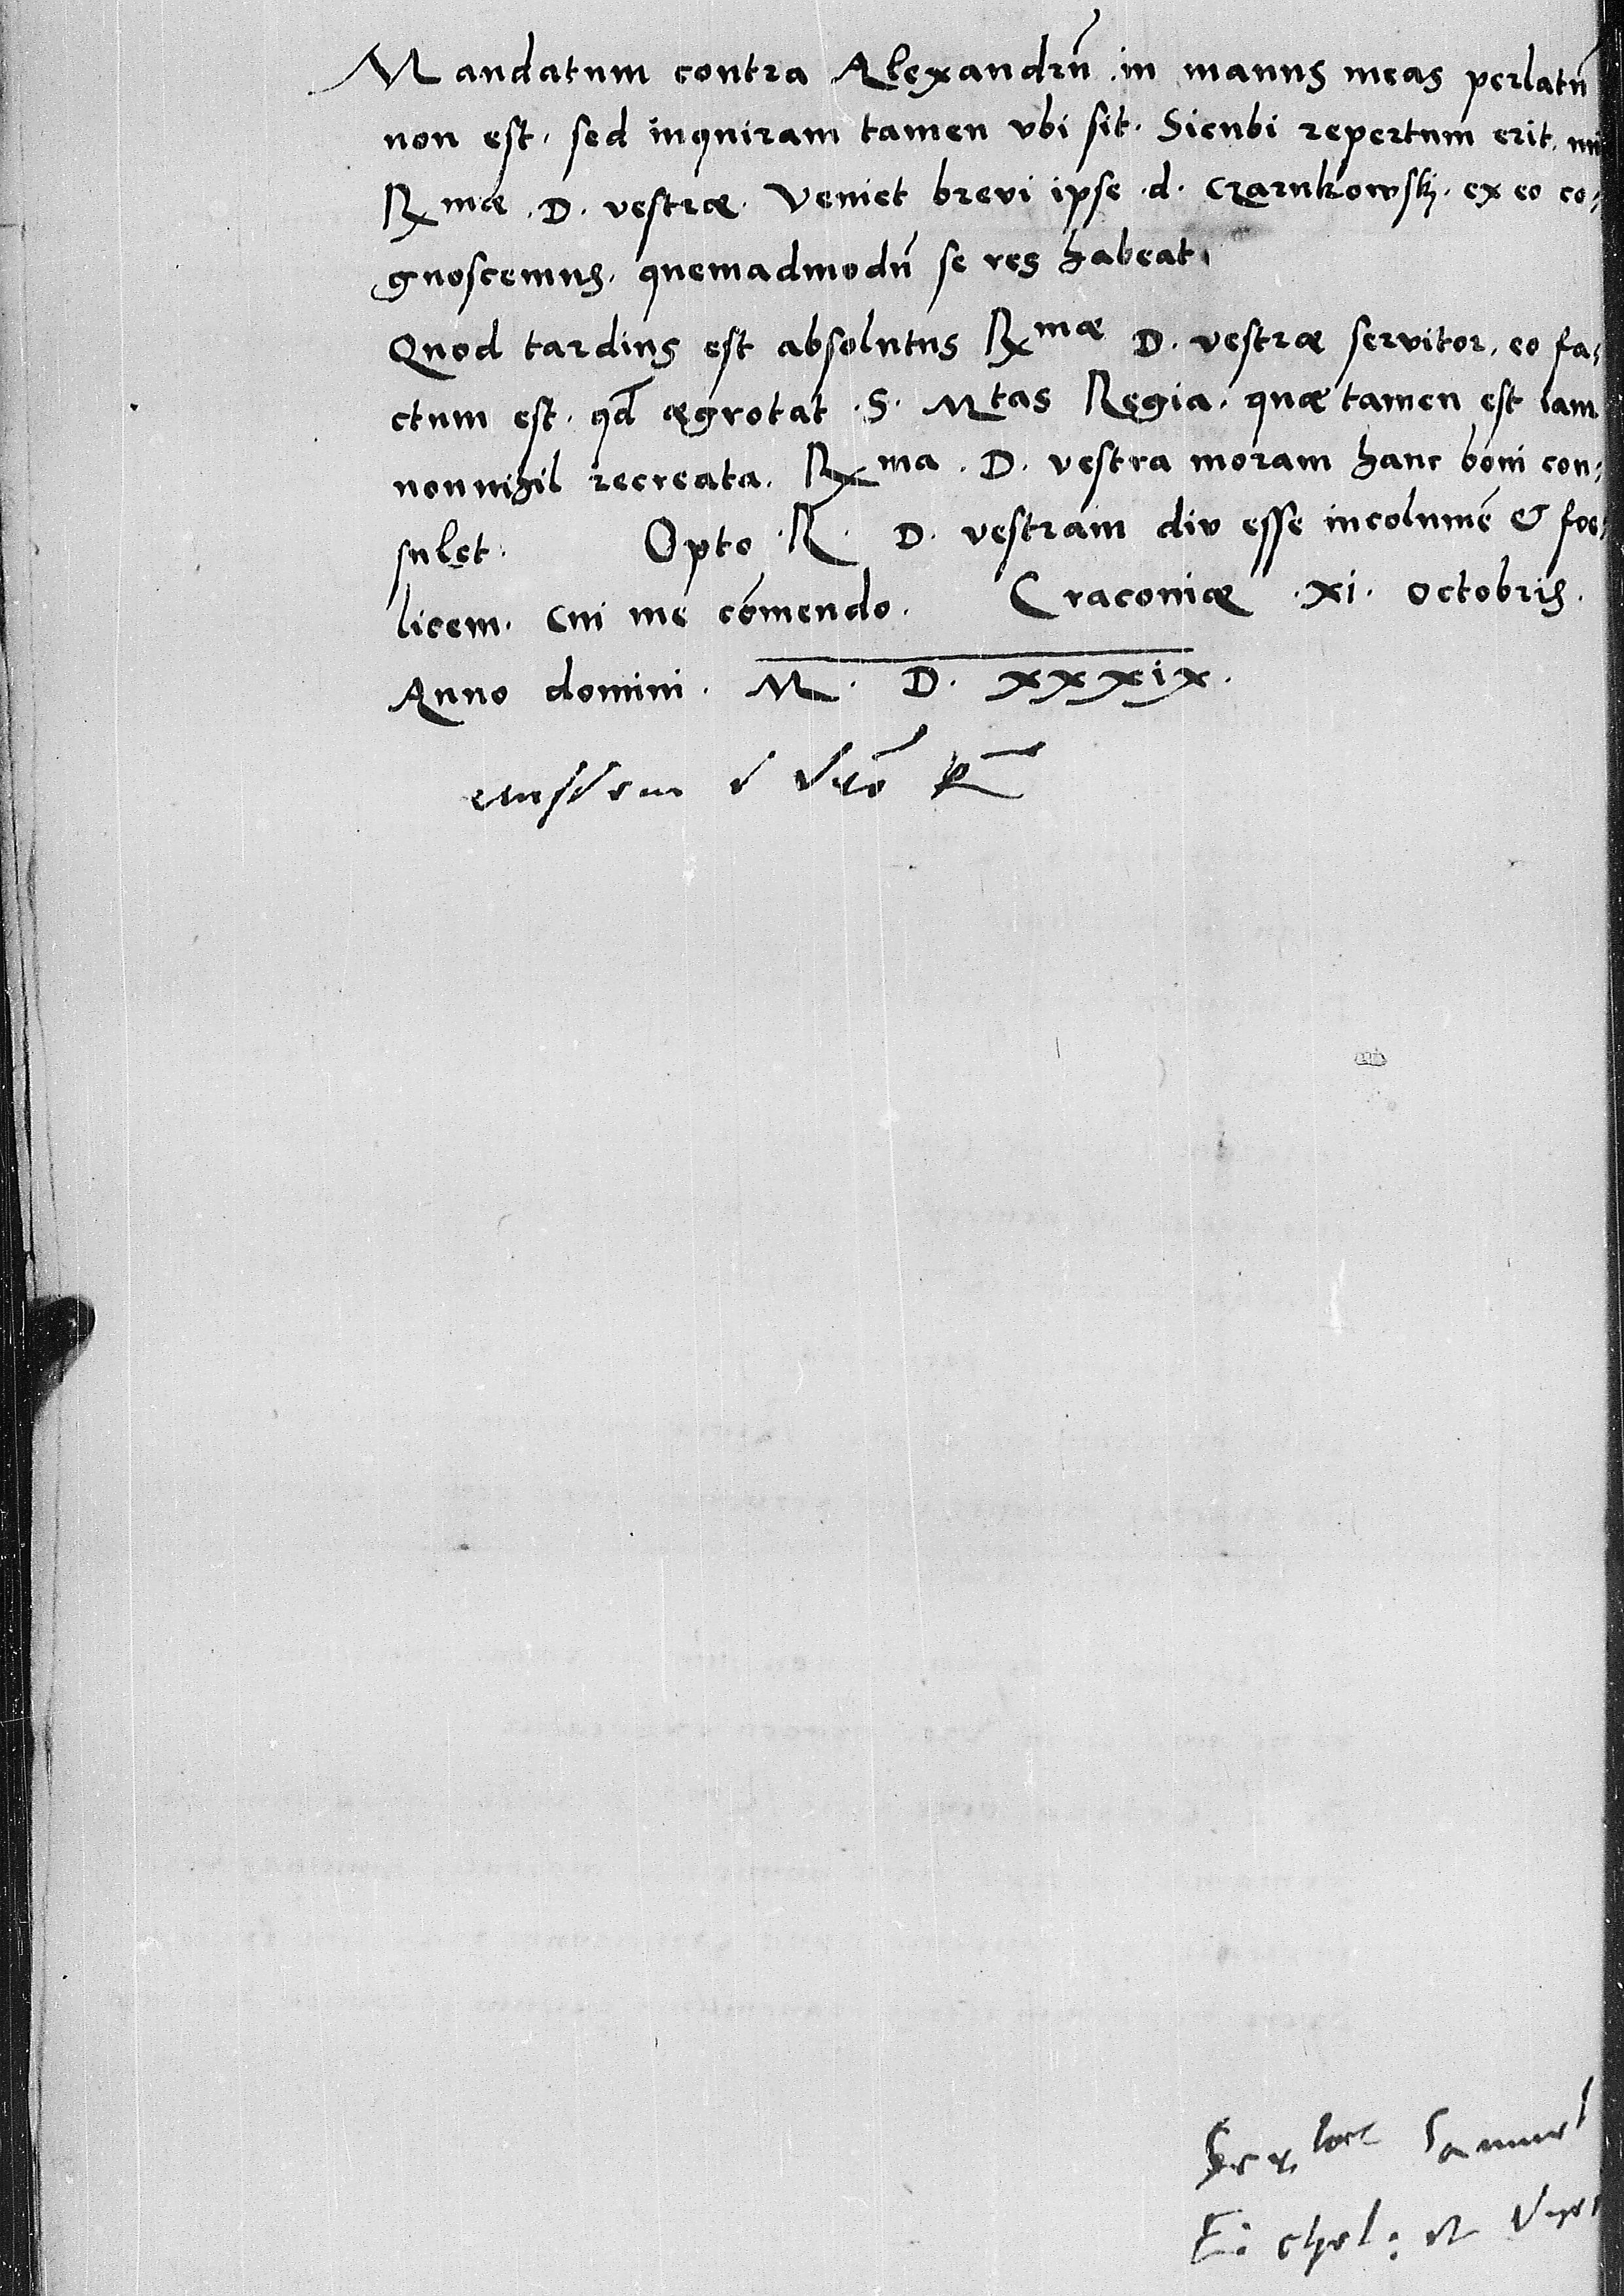 Mandatum contra Alexandrũ in manus meas perlatũ
non est. sed inquiram tamen vbi sit. Sicubi repertum erit.
Rmae. D. vestrae. Veniet brevi ipse .d. Czarnkowskj. ex eo co-
gnoscemus. quemadmodũ se res habeat.
Quod tardius est absolutus Rmae D. vestrae servitor, eo fa-
ctum est. qd aegrotat .S. Mtas Regia. quae tamen est iam
nonnihil recreata. Rma. D. vestra moram hanc boni con-
sulet. Opto .R. D. vestram div esse incolumẽ & foe-
licem. Cui me cõmendo. Cracouiae .xi. Octobris.
Anno domini. M. D. xxxix.
eiusdem
Samuel